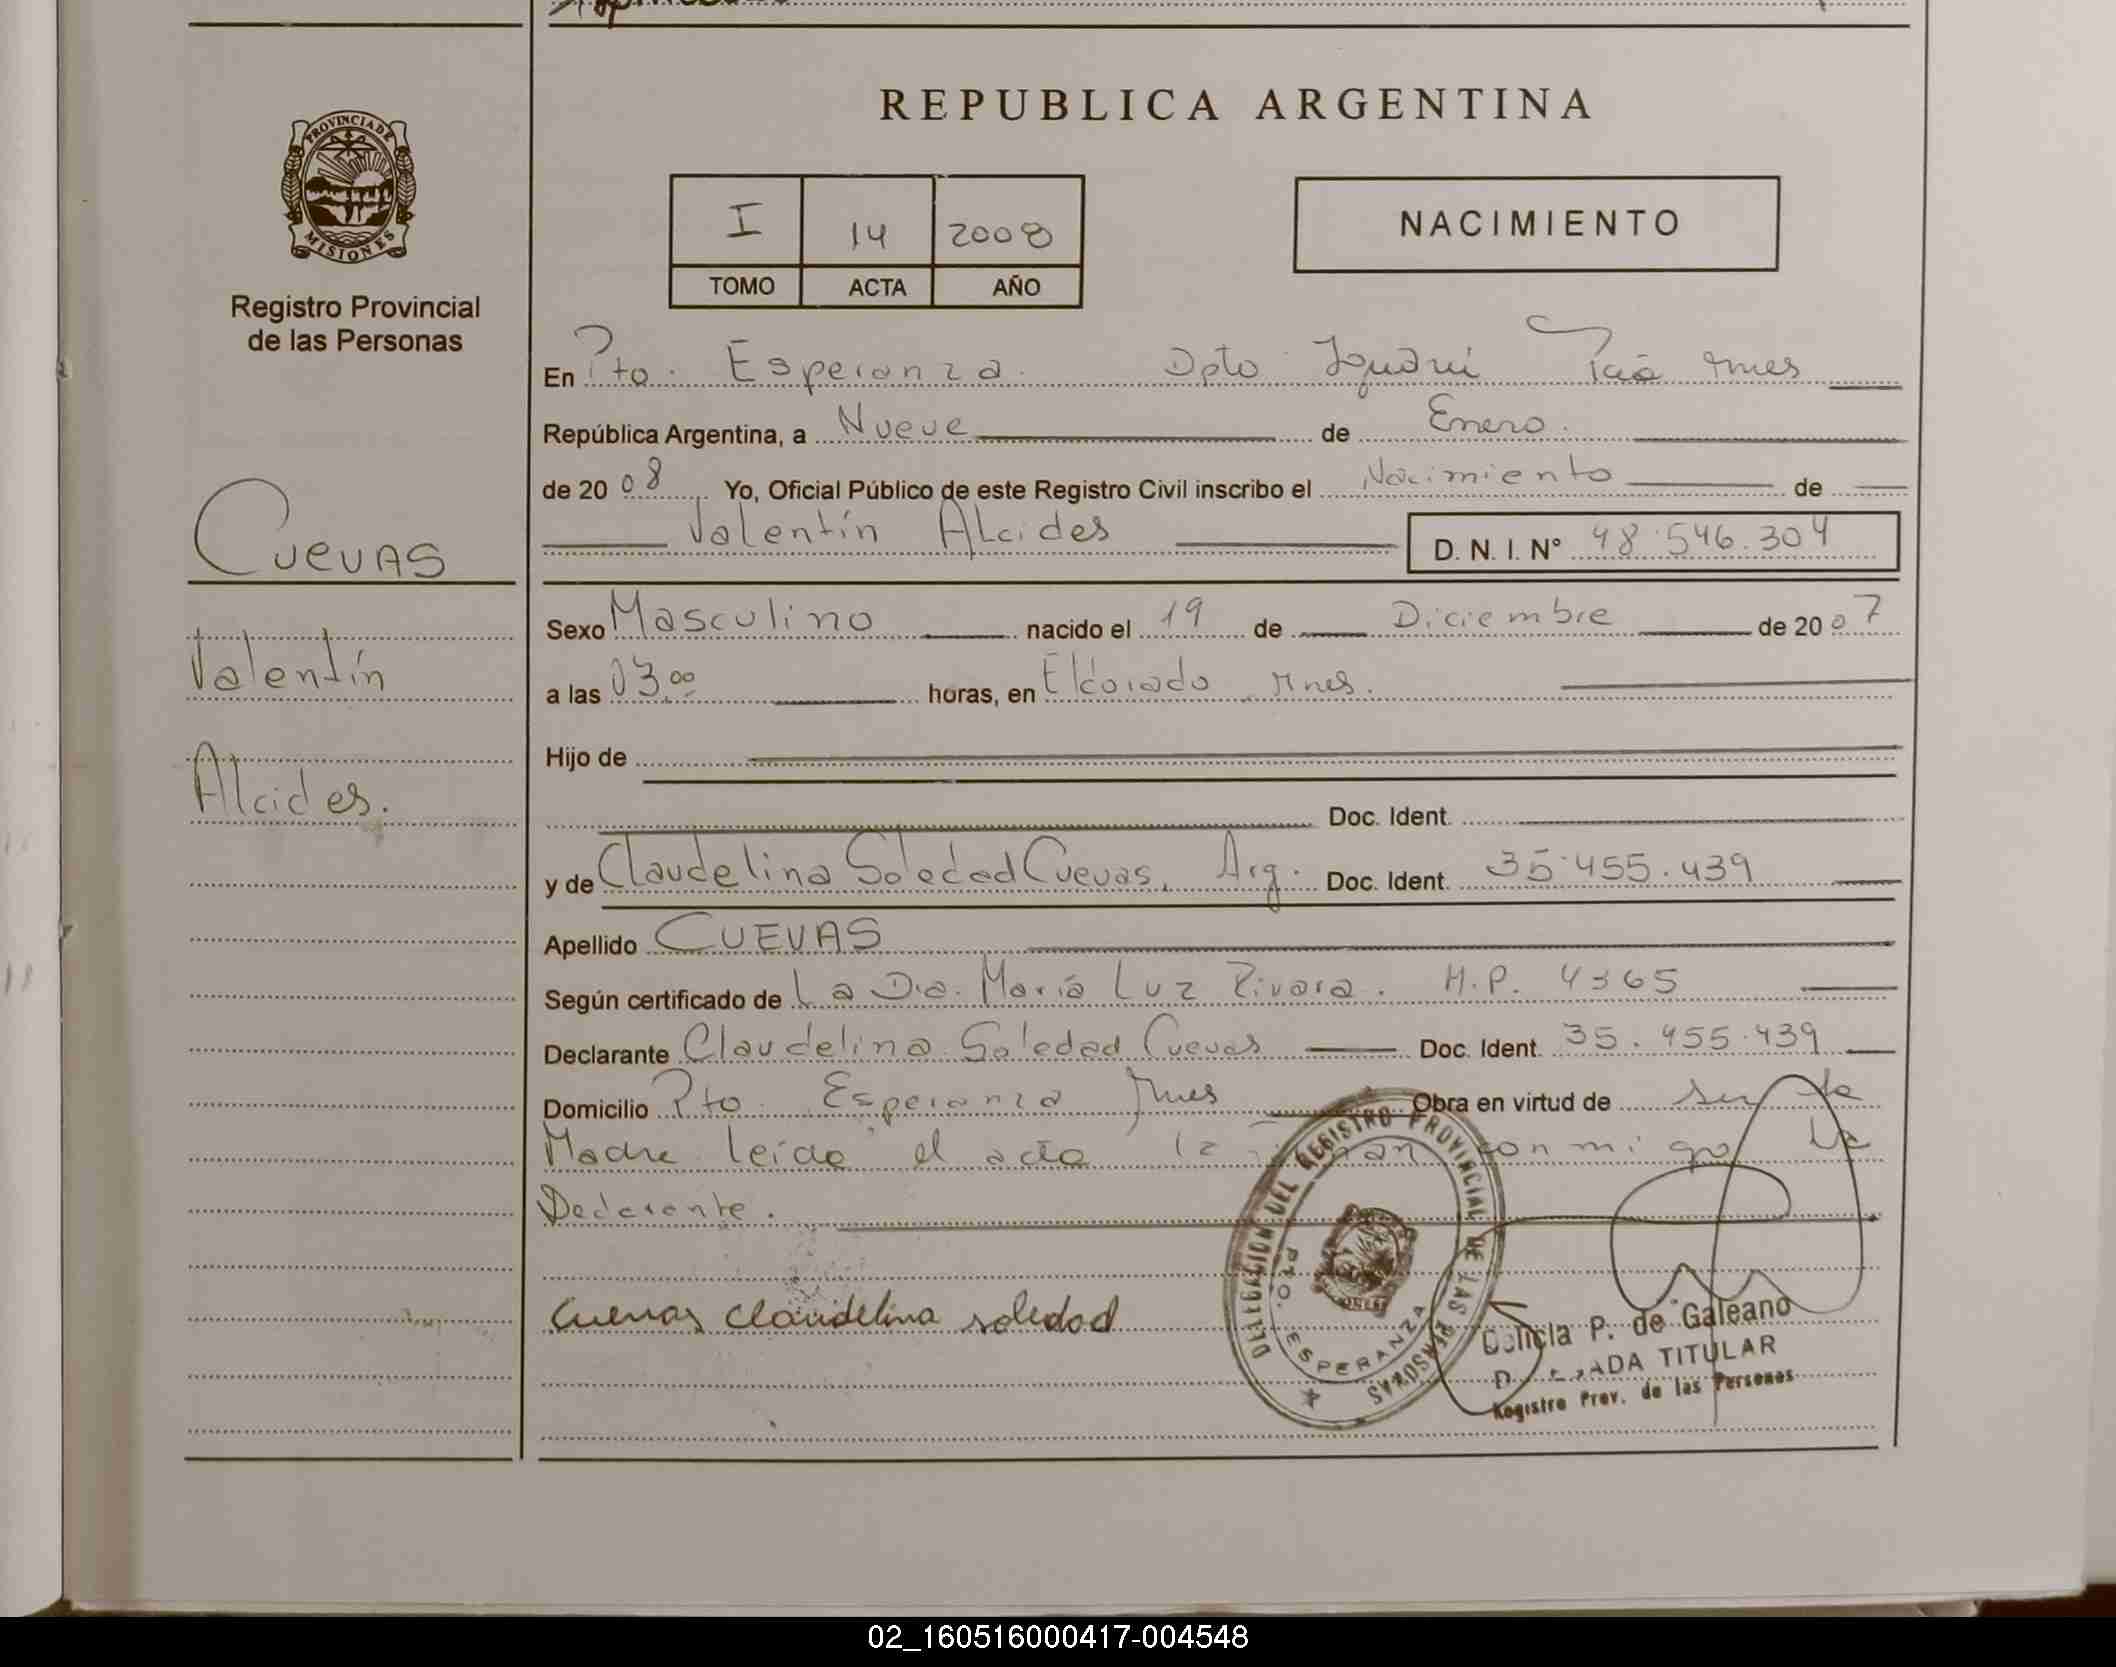 REPUBLICA ARGENTINA
PROVINCIA DE
MISIONES
Registro Provincial
de las Personas
I 14 2008
TOMO ACTA AÑO
NACIMIENTO
En Pto. Esperanza. Dpto Iguazú Pcia Mnes
República Argentina, a Nueve de Enero.
de 2008 Yo, Oficial Público de este Registro Civil inscribo el Nacimiento de
Valentín Alcides D. N. I. N° 48.546.304
CUEVAS
Valentín
Alcides.
Sexo Masculino nacido el 19 de Diciembre de 2007
a las 03.00 horas, en Eldorado Mnes.
Hijo de
Doc. Ident.
y de Claudelina Soledad Cuevas. Arg. Doc. Ident. 35.455.439
Apellido CUEVAS
Según certificado de La Dra. María Luz Rivara. M.P. 4365
Declarante Claudelina Soledad Cuevas Doc. Ident. 35.455.439
Domicilio Pto. Esperanza Mnes Obra en virtud de ser la
Madre leída el acta la firman conmigo la
Declarante.
Cuevas Claudelina soledad
DELEGACION DEL REGISTRO PROVINCIAL DE LAS PERSONAS
PTO. ESPERANZA
P. de Galeano
TITULAR
Registro Prov. de las Personas
02_160516000417-004548